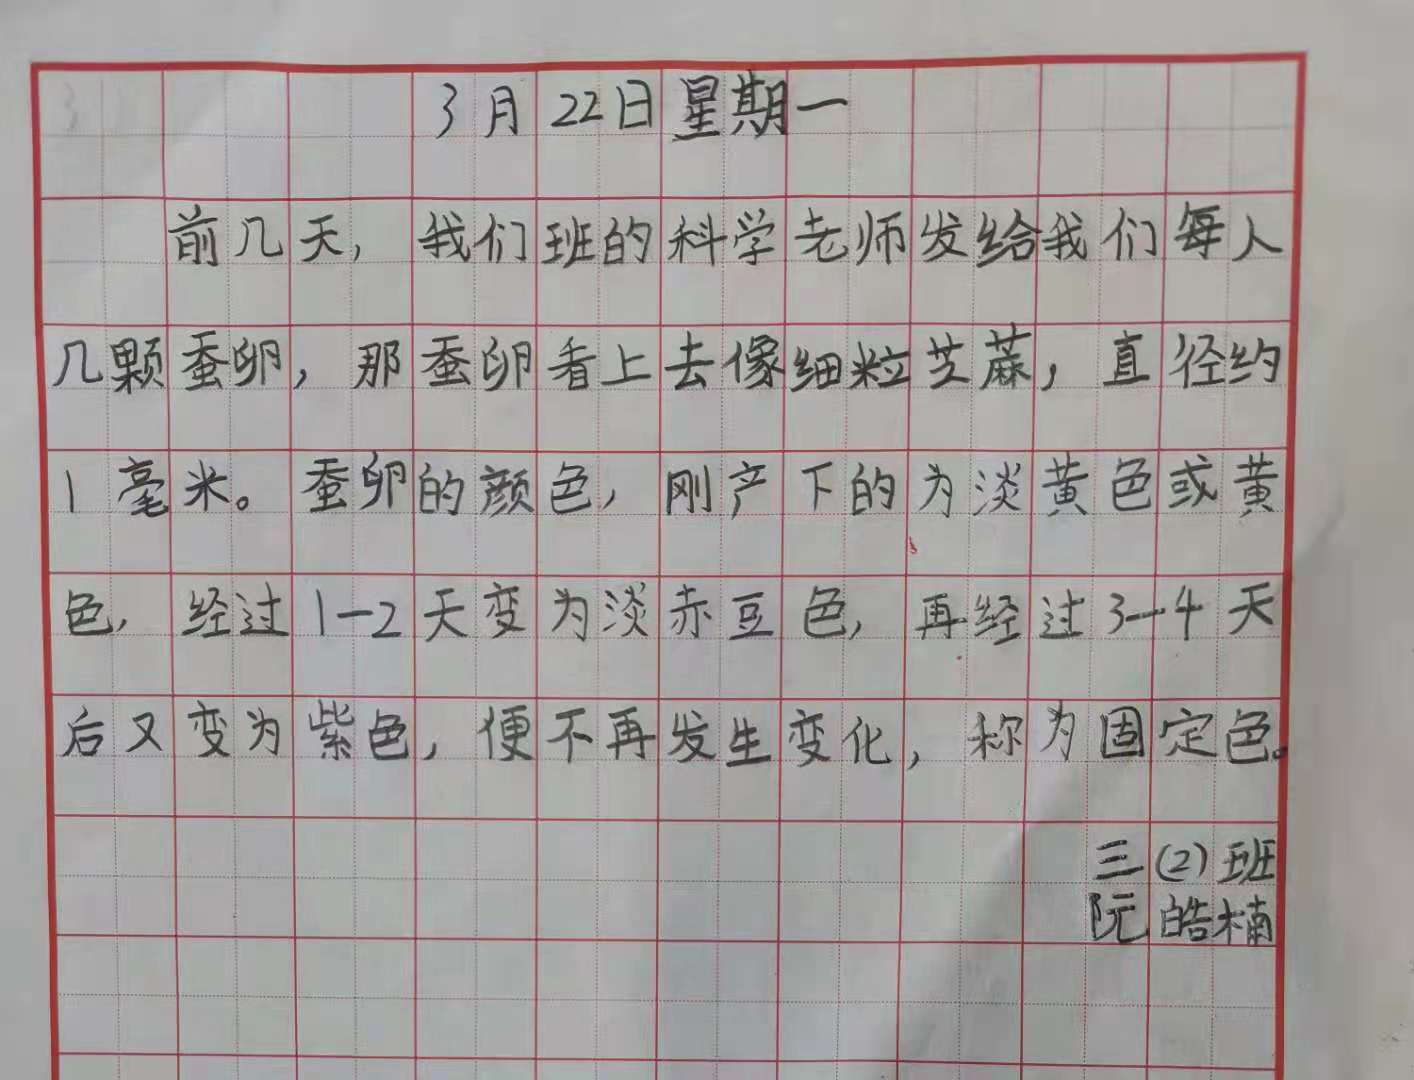 3月22日星期一
前几天,我们班的科学老师发给我们每人
几颗蚕卵,那蚕卵看上去像细粒芝蔴,直径约
1毫米。蚕卵的颜色,刚产下的为淡黄色或黄
色,经过1—2天变为淡赤豆色,再经过3—4天
后又变为紫色,便不再发生变化,称为固定色。
三(2)班
阮皓楠